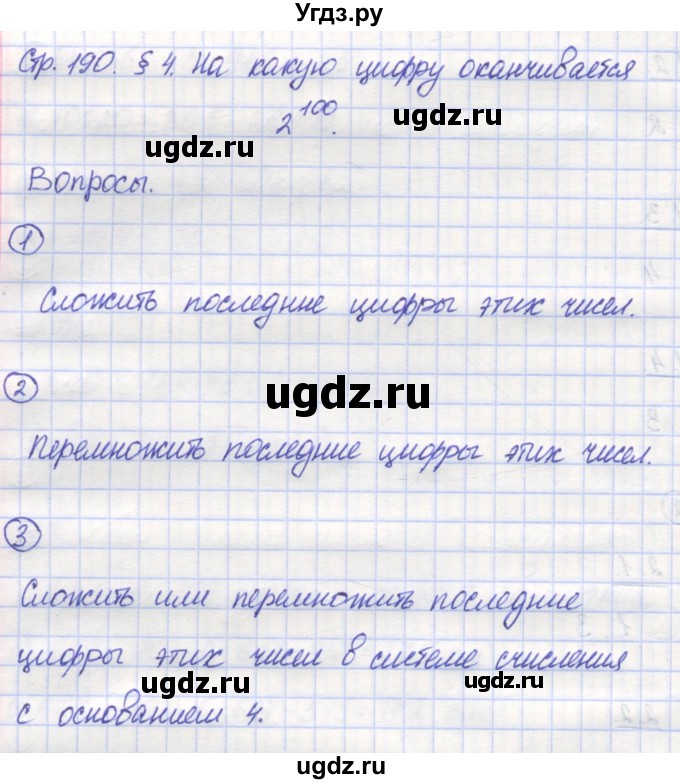 Угдз.ру
Стр. 190. § 4. На какую цифру оканчивается
2^100.
ugdz.ru
ugdz.ru
Вопросы.
1
Сложить последние цифры этих чисел.
2
ugdz.ru
Перемножить последние цифры этих чисел.
3
Сложить или перемножить последние
цифры этих чисел в системе счисления
ugdz.ru
ugdz.ru
с основанием 4.
ugdz.ru